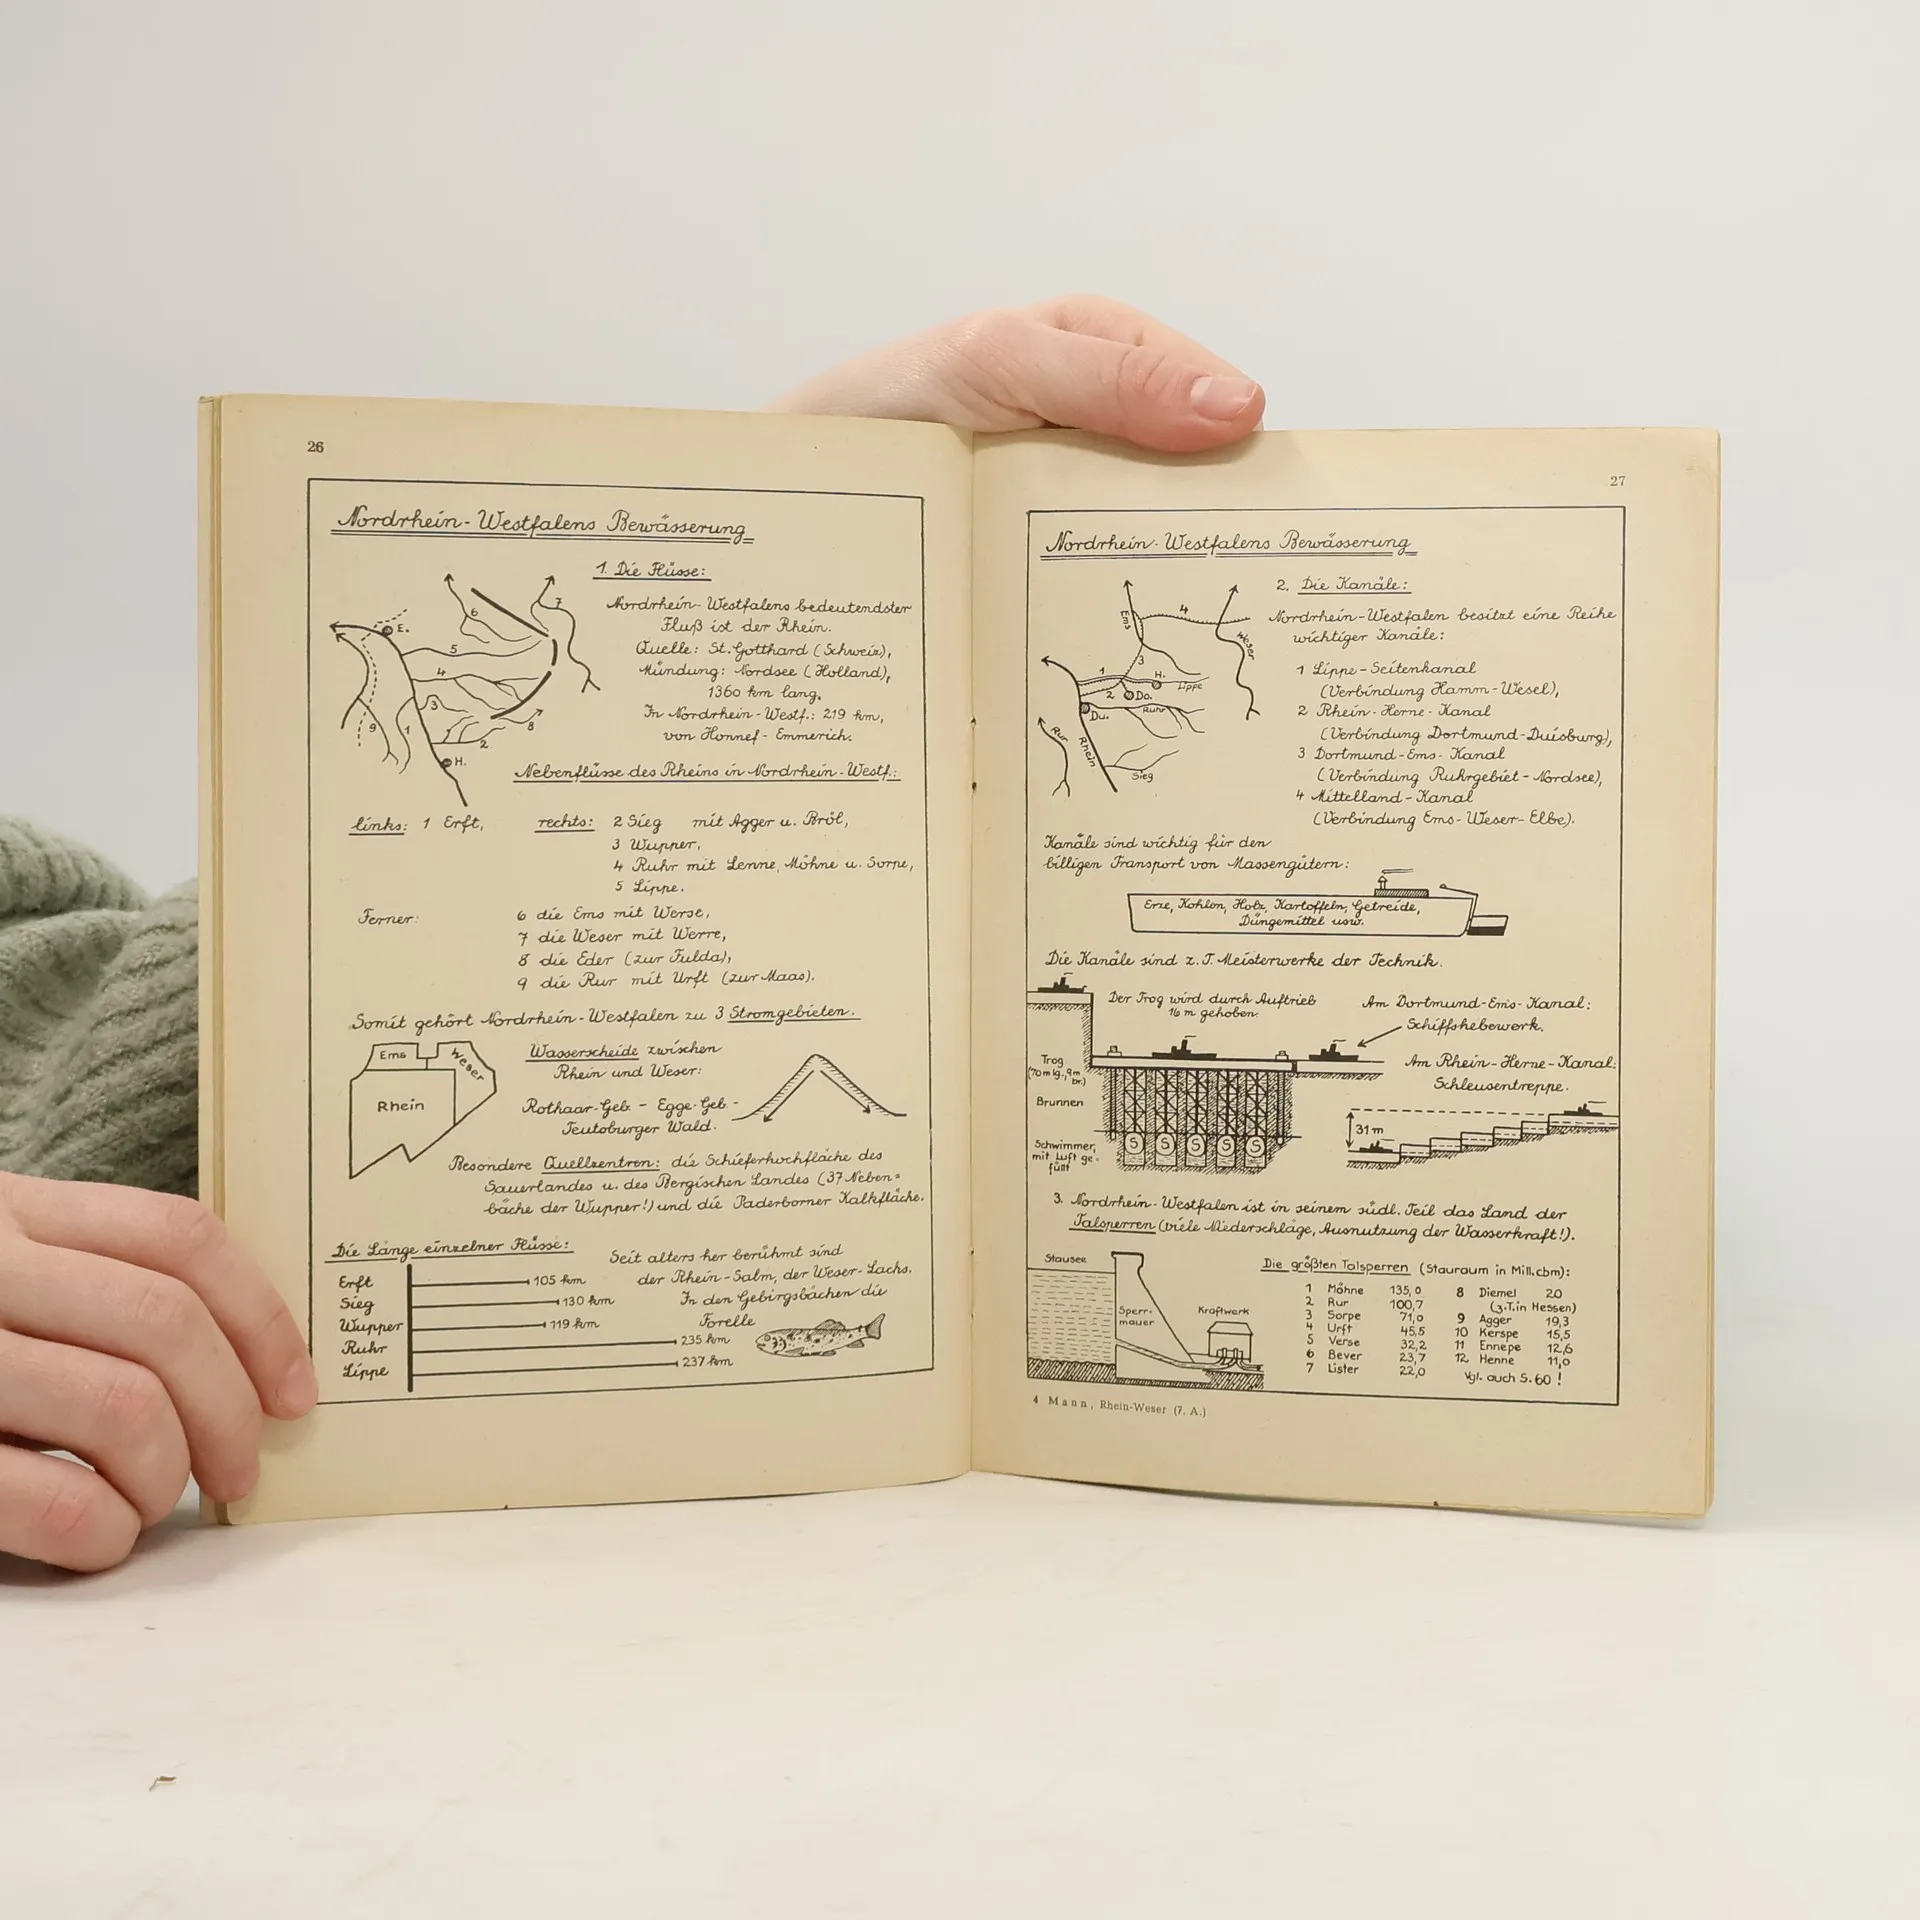 26
Nordrhein-Westfalens Bewässerung
1. Die Flüsse:
Nordrhein-Westfalens bedeutendster
Fluß ist der Rhein.
Quelle: St. Gotthard (Schweiz),
Mündung: Nordsee (Holland),
1360 km lang.
In Nordrhein-Westf.: 219 km,
von Honnef-Emmerich.
E.
6
7
5
4
3
8
9
1
2
H.
Nebenflüsse des Rheins in Nordrhein-Westf.:
links: 1 Erft, rechts: 2 Sieg mit Agger u. Bröl,
3 Wupper,
4 Ruhr mit Lenne, Möhne u. Sorpe,
5 Lippe.
Ferner: 6 die Ems mit Werse,
7 die Weser mit Werre,
8 die Eder (zur Fulda),
9 die Rur mit Urft (zur Maas).
Somit gehört Nordrhein-Westfalen zu 3 Stromgebieten.
Ems
Weser
Rhein
Wasserscheide zwischen
Rhein und Weser:
Rothaar-Geb. - Egge-Geb. -
Teutoburger Wald.
Besondere Quellzentren: die Schieferhochfläche des
Sauerlandes u. des Bergischen Landes (37 Neben=
bäche der Wupper!) und die Paderborner Kalkfläche.
Die Länge einzelner Flüsse:
Erft 105 km
Sieg 130 km
Wupper 119 km
Ruhr 235 km
Lippe 237 km
Seit alters her berühmt sind
der Rhein-Salm, der Weser-Lachs.
In den Gebirgsbächen die
Forelle
27
Nordrhein-Westfalens Bewässerung
2. Die Kanäle:
Nordrhein-Westfalen besitzt eine Reihe
wichtiger Kanäle:
1 Lippe-Seitenkanal
(Verbindung Hamm-Wesel),
2 Rhein-Herne-Kanal
(Verbindung Dortmund-Duisburg),
3 Dortmund-Ems-Kanal
(Verbindung Ruhrgebiet-Nordsee),
4 Mittelland-Kanal
(Verbindung Ems-Weser-Elbe).
Ems
4
Weser
3
1
H.
Lippe
2
Do.
Du.
Ruhr
Rur
Rhein
Sieg
Kanäle sind wichtig für den
billigen Transport von Massengütern:
Erze, Kohlen, Holz, Kartoffeln, Getreide,
Düngemittel usw.
Die Kanäle sind z.T. Meisterwerke der Technik.
Der Trog wird durch Auftrieb
16 m gehoben.
Am Dortmund-Ems-Kanal:
Schiffshebewerk.
Trog
(70 m lg., 9 m
br.)
Brunnen
Schwimmer,
mit Luft ge-
füllt
S S S S S
Am Rhein-Herne-Kanal:
Schleusentreppe.
31 m
3. Nordrhein-Westfalen ist in seinem südl. Teil das Land der
Talsperren (viele Niederschläge, Ausnutzung der Wasserkraft!).
Stausee
Sperr-
mauer
Kraftwerk
Die größten Talsperren (Stauraum in Mill.cbm):
1 Möhne 135,0
2 Rur 100,7
3 Sorpe 71,0
4 Urft 45,5
5 Verse 32,2
6 Bever 23,7
7 Lister 22,0
8 Diemel 20
(z.T. in Hessen)
9 Agger 19,3
10 Kerspe 15,5
11 Ennepe 12,6
12 Henne 11,0
Vgl. auch S. 60!
4 Mann, Rhein-Weser (7. A.)